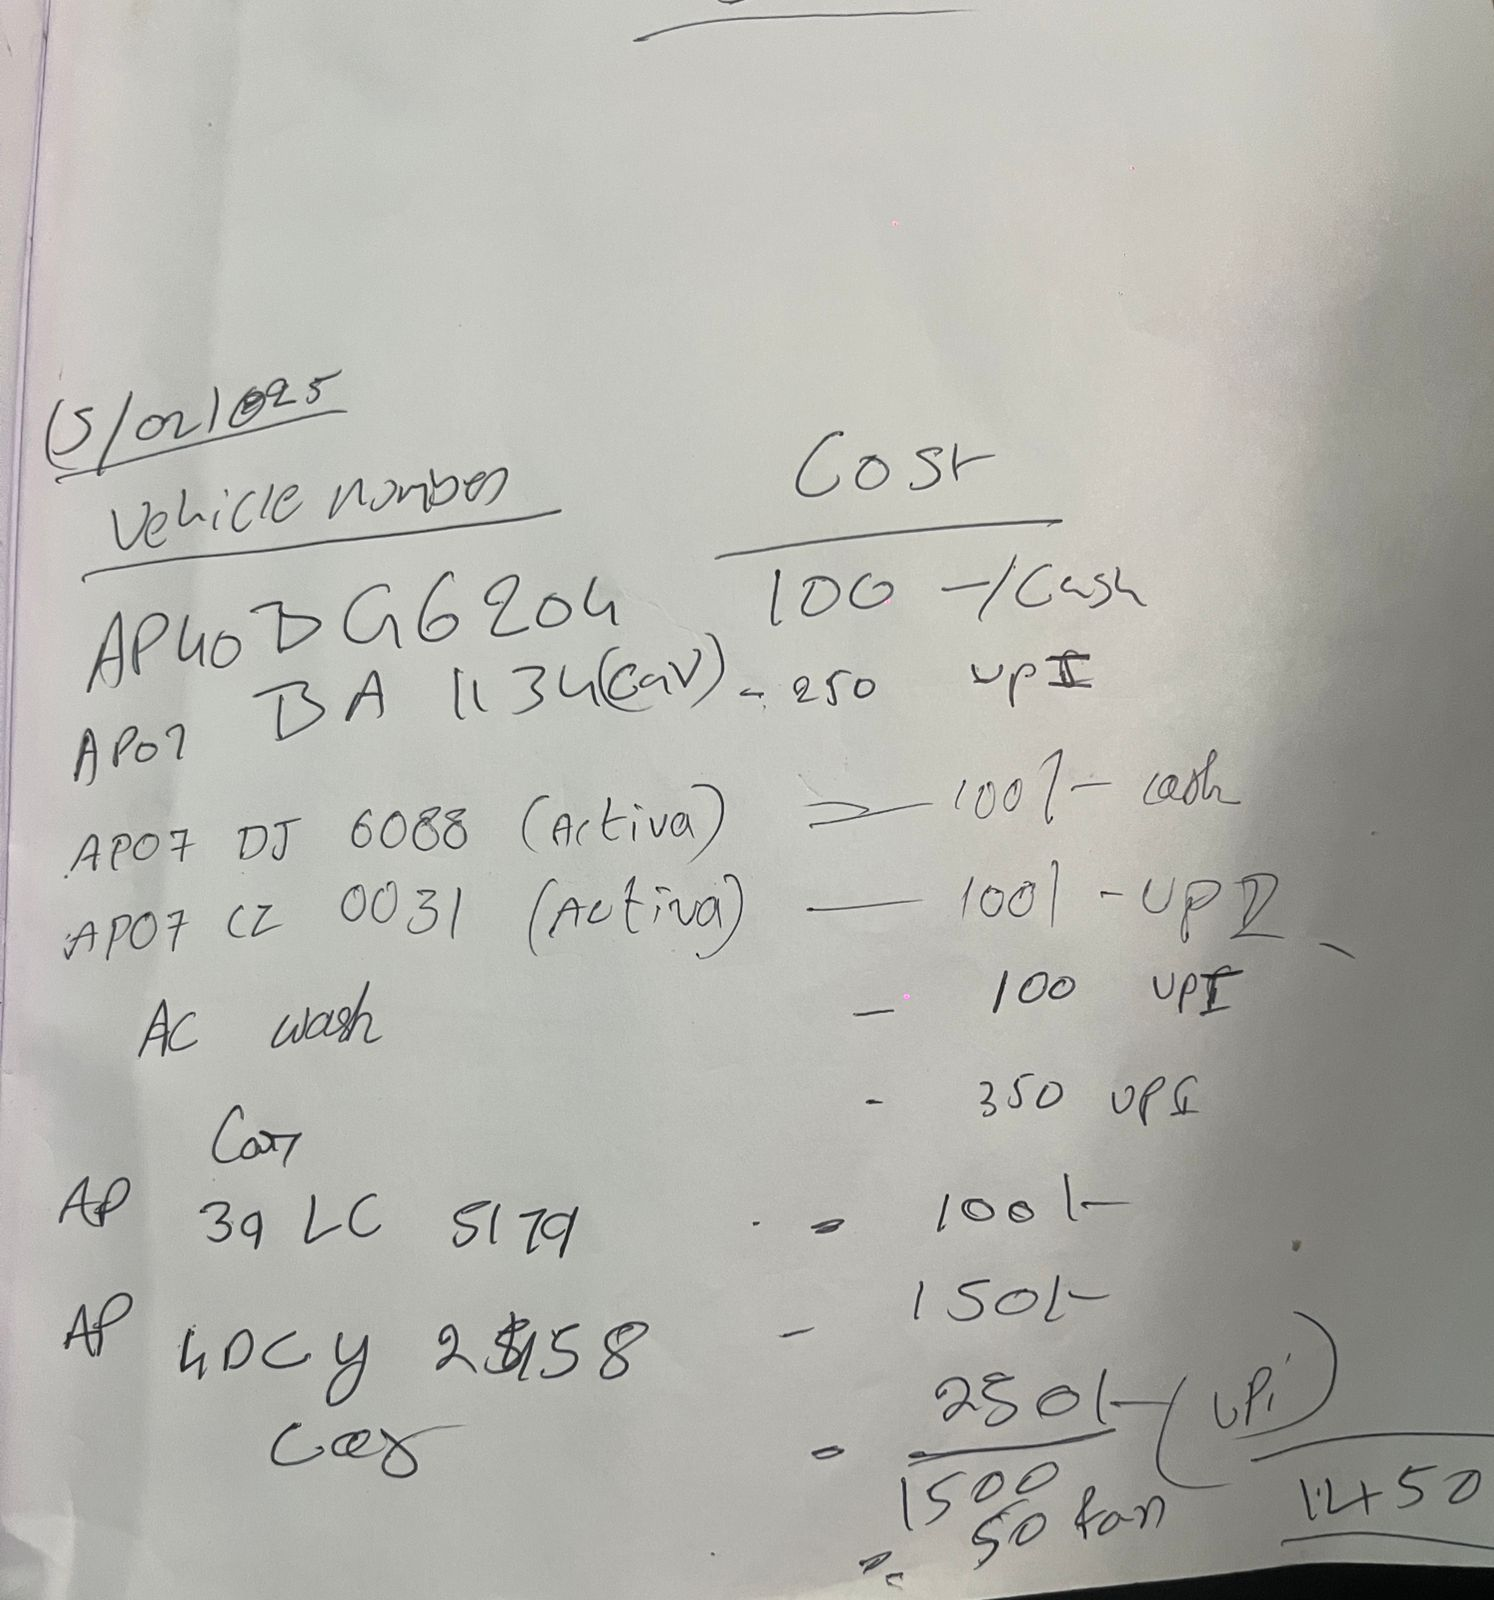 15/02/025
Vehicle number Cost
AP40DG6204 100 -/Cash
AP07 BA 1134(Car) - 250 UPI
AP07 DJ 6088 (Activa) = 100/- cash
AP07 CZ 0031 (Activa) — 100/- UPI
AC wash - 100 UPI
Car - 350 UPI
AP 39 LC 5179 = 100/-
AP 40CY 2158 - 150/-
Car = 250/- (UPi)
1500
50 fan 1450